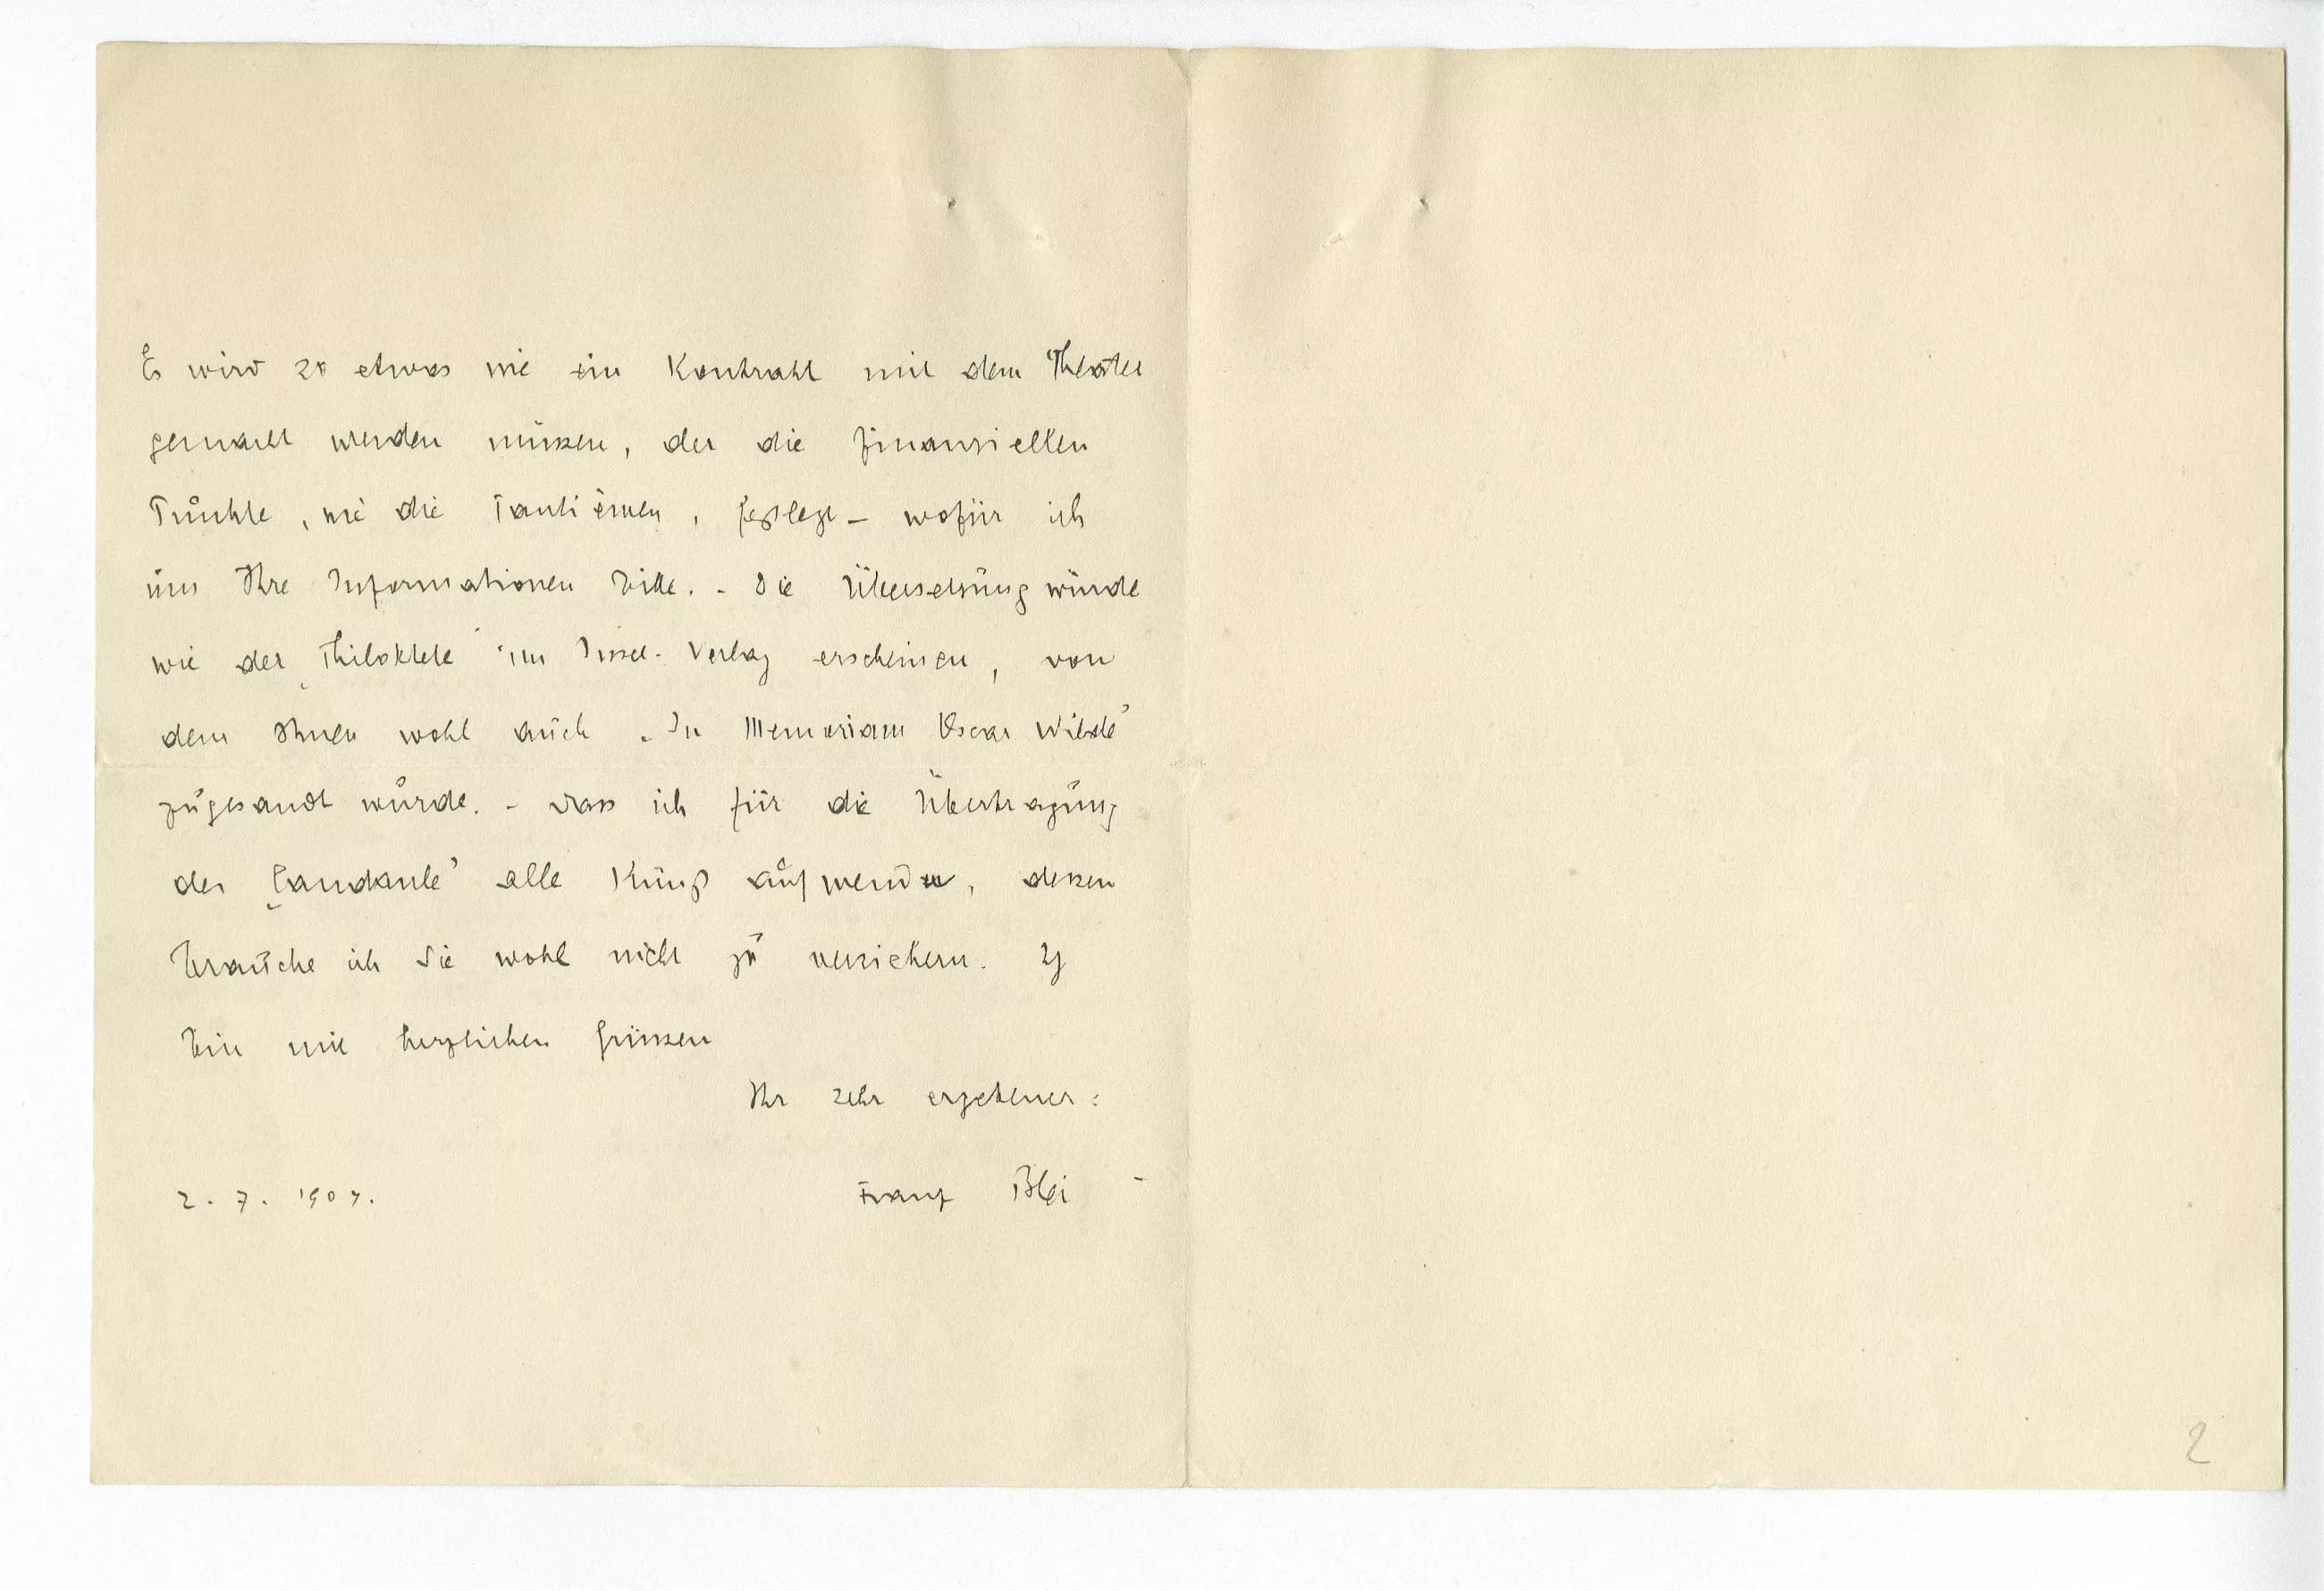 Es wird so etwas wie ein Kontrakt mit dem Theater
gemacht werden müssen, der die finanziellen
Punkte, wie die Tantièmen, festlegt – wofür ich
um Ihre Informationen bitte. – Die Übersetzung würde
wie der „Philoktete“ im Insel-Verlag erscheinen, von
dem Ihnen wohl auch „In Memoriam Oscar Wilde“
zugesandt wurde. – Dass ich für die Übertragung
des „Candaule“ alle Kunst aufwende, dessen
brauche ich Sie wohl nicht zu versichern. Ich
bin mit herzlichen Grüssen
Ihr sehr ergebener:
Franz Blei
2. 7. 1904.
2